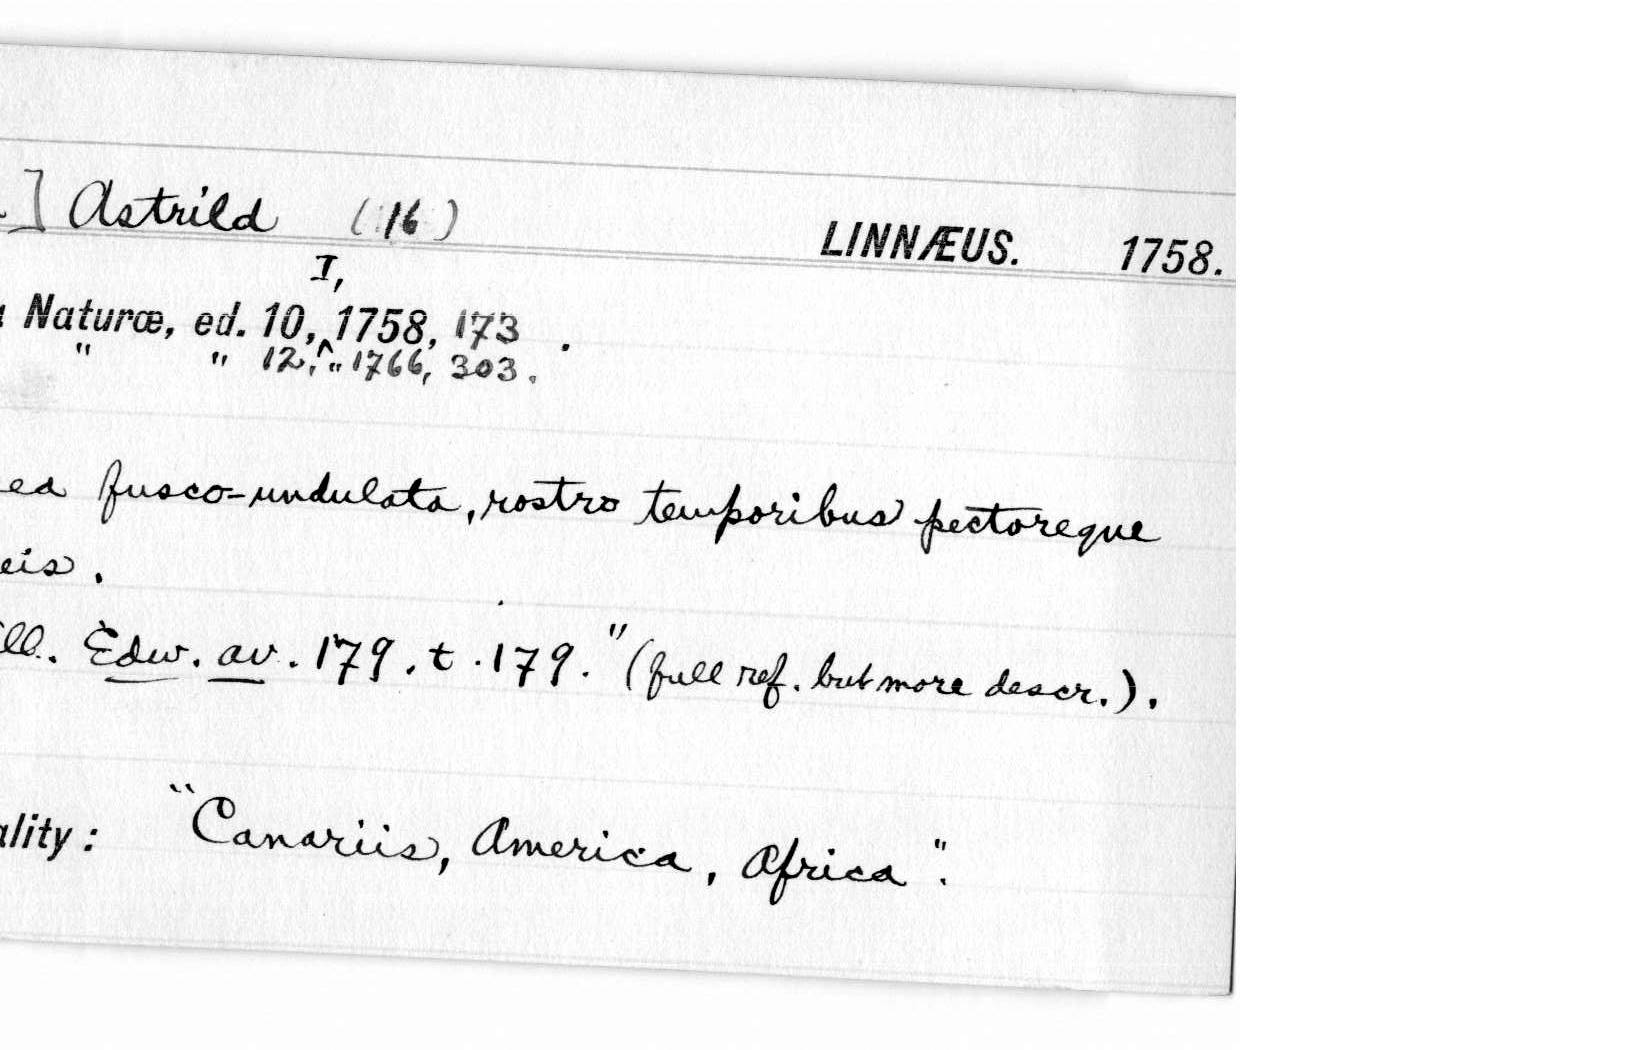 ] Astrild (16) LINNÆUS. 1758.
I,
Naturæ, ed. 10, ^ 1758, 173 .
" " 12, " 1766, 303.
ea fusco-undulata, rostro temporibus pectoreque
eis.
ill. Edw. av. 179. t. 179." (full ref. but more descr.).
ality: "Canariis, America, Africa".